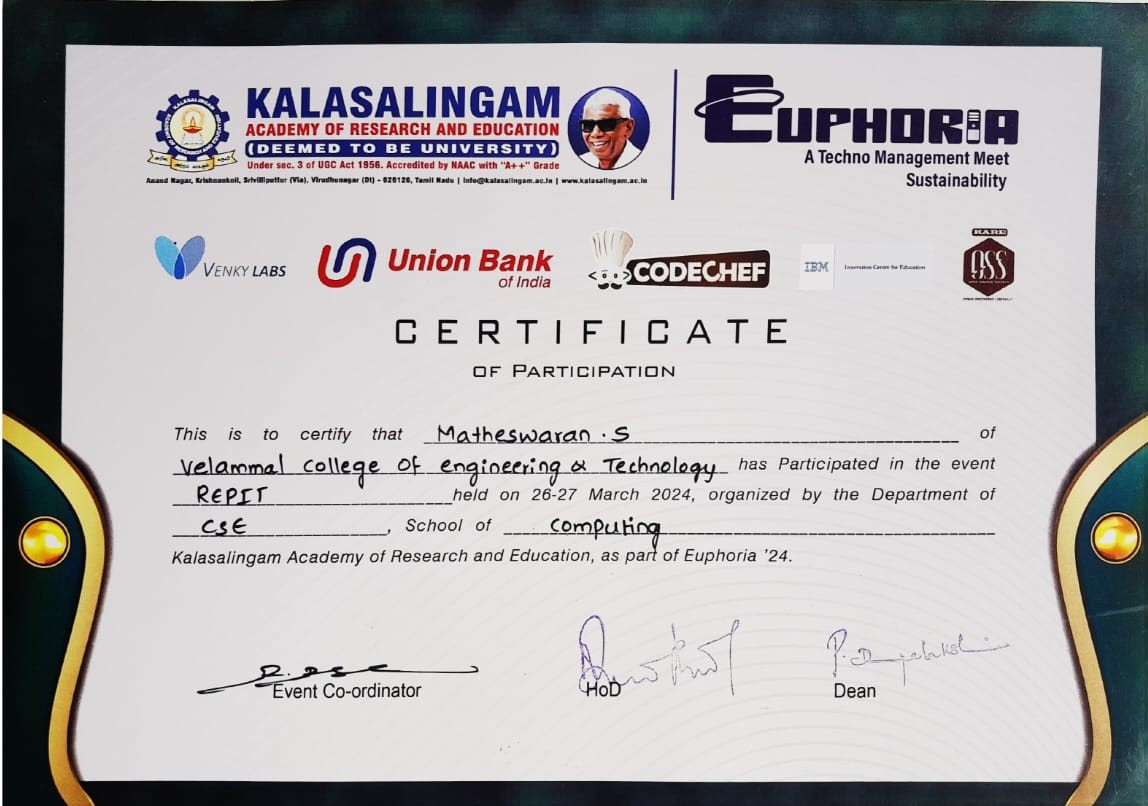 KALASALINGAM
ACADEMY OF RESEARCH AND EDUCATION
(DEEMED TO BE UNIVERSITY)
Under sec. 3 of UGC Act 1956. Accredited by NAAC with "A++" Grade
Anand Nagar, Krishnankoil, Srivilliputtur (Via), Virudhunagar (Dt) - 626126, Tamil Nadu | info@kalasalingam.ac.in | www.kalasalingam.ac.in
EUPHORIA
A Techno Management Meet
Sustainability
VENKY LABS
Union Bank
of India
CODECHEF
IBM
Innovation Centre for Education
KARE
OSS
CERTIFICATE
OF PARTICIPATION
This is to certify that Matheswaran . S of
Velammal College Of engineering & Technology has Participated in the event
REPIT held on 26-27 March 2024, organized by the Department of
CSE , School of Computing
Kalasalingam Academy of Research and Education, as part of Euphoria '24.
Event Co-ordinator
HoD
Dean